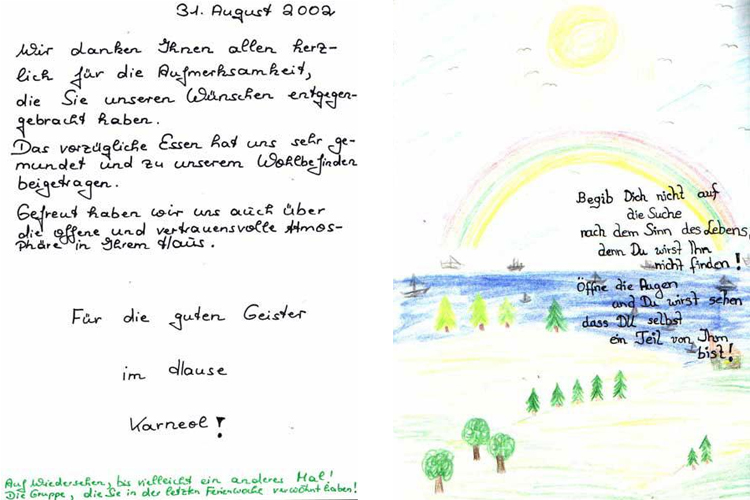 31. August 2002
Wir danken Ihnen allen herz-
lich für die Aufmerksamkeit,
die Sie unseren Wünschen entgegen-
gebracht haben.
Das vorzügliche Essen hat uns sehr ge-
mundet und zu unserem Wohlbefinden
beigetragen.
Gefreut haben wir uns auch über
die offene und vertrauensvolle Atmos-
phäre in Ihrem Haus.
Für die guten Geister
im Hause
Karneol!
Auf Wiedersehen, bis vielleicht ein anderes Mal!
Die Gruppe, die Sie in der letzten Ferienwoche verwöhnt haben!
Begib Dich nicht auf
die Suche
nach dem Sinn des Lebens,
denn Du wirst Ihn
nicht finden!
Öffne die Augen
und Du wirst sehen
dass DU selbst
ein Teil von Ihm
bist!